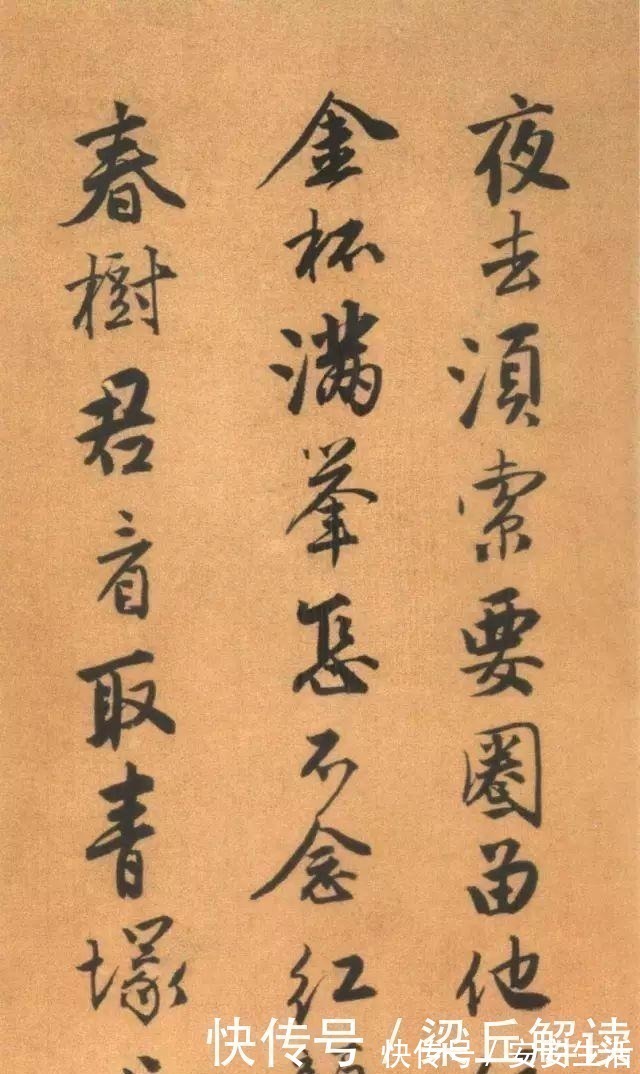 夜去須索要圈留他
金杯滿举怎不念红
春樹君看取青塚
快传号 / 梁丘解读
快传号 /
生活